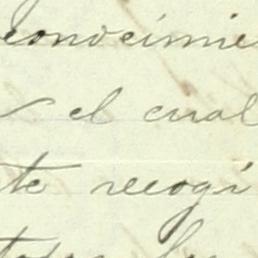 conocimie
el cual
te recogi